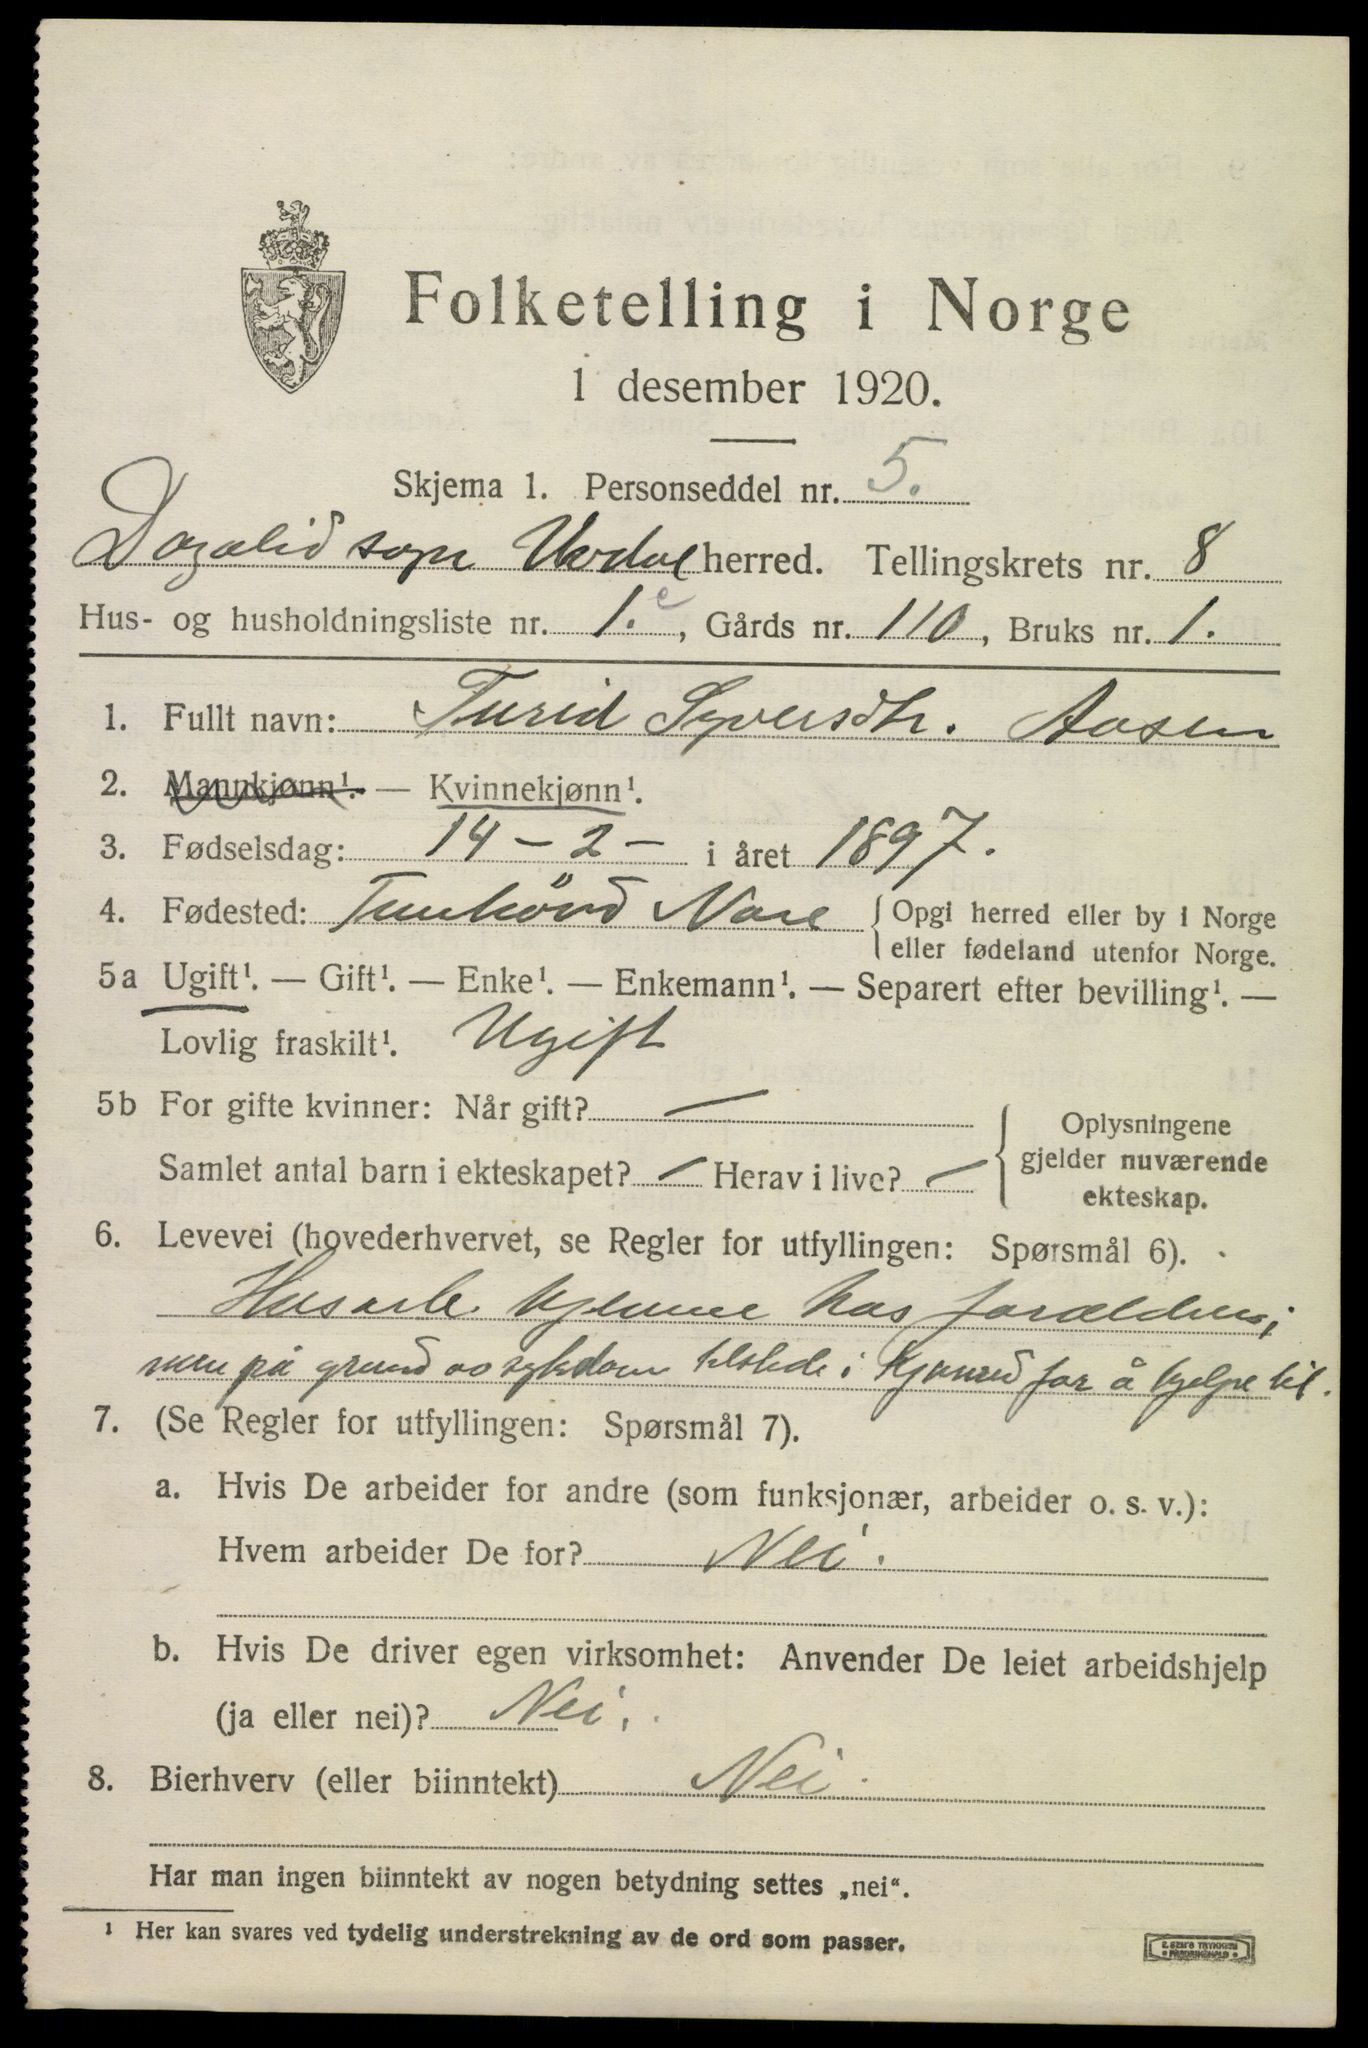 Folketelling i Norge
1 desember 1920.
Skjema 1. Personseddel nr. 5.
Dagalid sogn Uvdal herred. Tellingskrets nr. 8
Hus- og husholdningsliste nr. 1.c, Gårds nr. 110, Bruks nr. 1.
1. Fullt navn: Turid Syversdtr. Aasen
2. Mannkjønn¹. — Kvinnekjønn¹.
3. Fødselsdag: 14 – 2 – i året 1897.
4. Fødested: Tunhövd Nore {Opgi herred eller by i Norge
eller fødeland utenfor Norge.
5a Ugift¹. — Gift¹. — Enke¹. — Enkemann¹. — Separert efter bevilling¹. —
Lovlig fraskilt¹. Ugift
5b For gifte kvinner: Når gift? —
Samlet antal barn i ekteskapet? — Herav i live? —
{Oplysningene
gjelder nuværende
ekteskap.
6. Levevei (hovederhvervet, se Regler for utfyllingen: Spørsmål 6).
Husarb. hjemme hos forældrene;
men på grund av sykdom tilstede i for å hjelpe til.
7. (Se Regler for utfyllingen: Spørsmål 7).
a. Hvis De arbeider for andre (som funksjonær, arbeider o. s. v.):
Hvem arbeider De for? Nei.
b. Hvis De driver egen virksomhet: Anvender De leiet arbeidshjelp
(ja eller nei)? Nei.
8. Bierhverv (eller biinntekt) Nei.
Har man ingen biinntekt av nogen betydning settes „nei“.
¹ Her kan svares ved tydelig understrekning av de ord som passer.
E. SEM'S TRYKKERI
FREDRIKSHALD